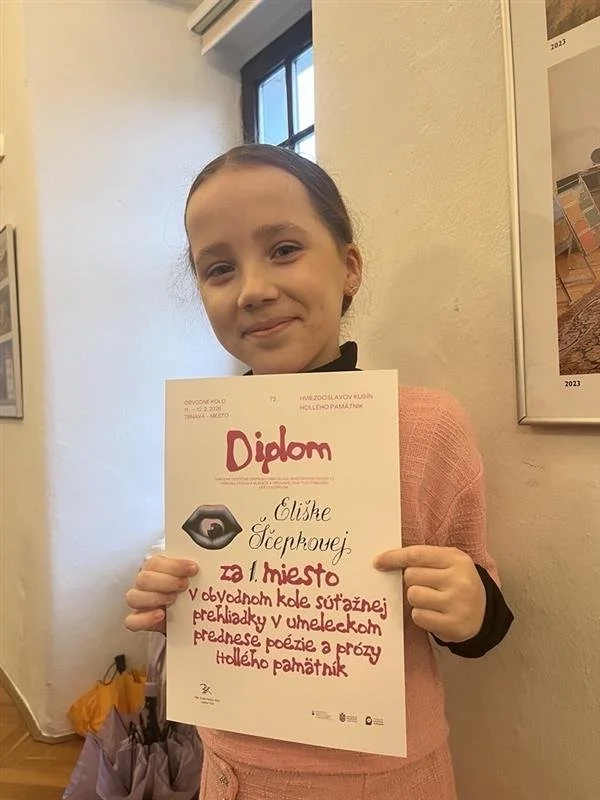 OBVODNÉ KOLO
11. – 12. 2. 2026
TRNAVA – MESTO
72.
HVIEZDOSLAVOV KUBÍN
HOLLÉHO PAMÄTNÍK
Diplom
Eliške
Ščepkovej
za 1. miesto
v obvodnom kole súťažnej
prehliadky v umeleckom
prednese poézie a prózy
Hollého pamätník
2023
2023